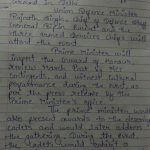 ground in Delhi
Union Defence Minister
Rajnath Singh, Chief of Defence Staff
General Bipin Rawat and the
three armed services chiefs will
attend the event
Prime Minister will
inspect the Guard of Honour,
review March Past by NCC
Contingents, and witness cultural
performance during the event, as
per the press release by the
Prime Minister's office
The prime minister would
also present awards to the deserving
cadets and would later address
the gathering. During the event,
the cadets would exhibit